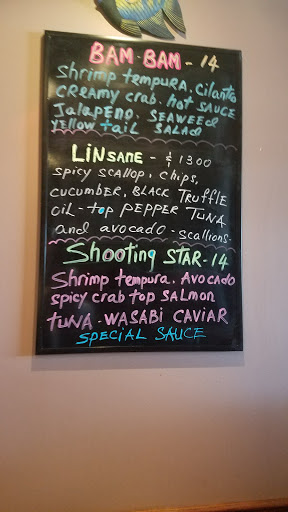 BAM-BAM-14
Shrimp tempura. Cilantro
CREAMY CRAB. hot SAUCE
Jalapeno. SEAWEED
yellow tail SALAD
LINSANE - $1300
spicy scallop, chips,
cucumber, BLACK TRUFFLE
oil-top PEPPER TUNA
and avocado-scallions.
Shooting STAR-14
Shrimp tempura. AVOCADO
spicy crab top SALMON
TUNA-WASABI CAVIAR
SPECIAL SAUCE